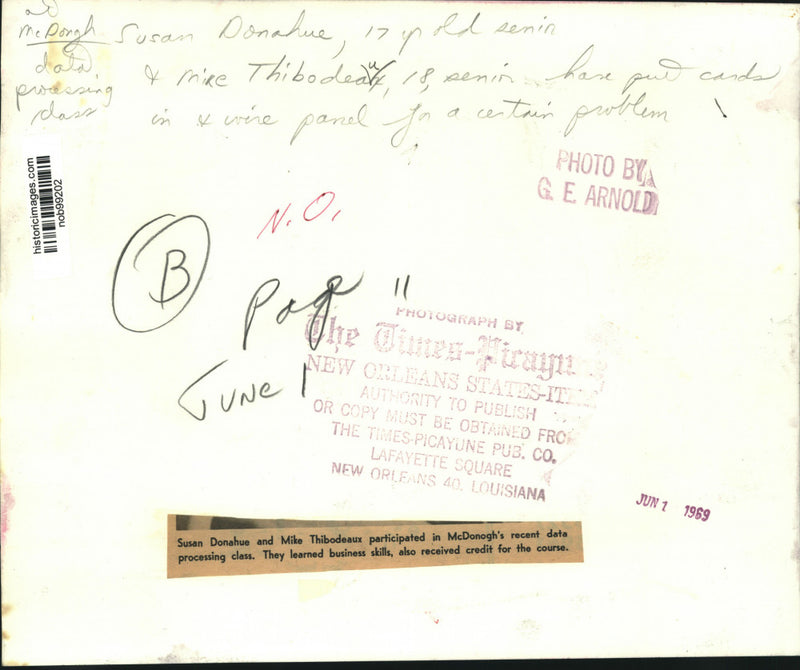 at
McDongh Susan Donahue, 17 yr old senin
data & Mike Thibodeaux, 18, senin have put cards
processing in & wire panel for a certain problem
class
PHOTO BY
G. E. ARNOLD
historicimages.com
nob99202
N.O.
B
Page 11
June 1
PHOTOGRAPH BY
The Times-Picayun
NEW ORLEANS STATES-ITE
AUTHORITY TO PUBLISH
OR COPY MUST BE OBTAINED FRO
THE TIMES-PICAYUNE PUB. CO.
LAFAYETTE SQUARE
NEW ORLEANS 40, LOUISIANA
JUN 1 1969
Susan Donahue and Mike Thibodeaux participated in McDonogh's recent data
processing class. They learned business skills, also received credit for the course.